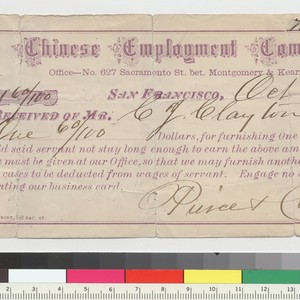 Chinese Employment Com
Office—No. 627 Sacramento St. bet. Montgomery & Kear
60/100 San Francisco, Oct
Received of Mr. C J Clayton
60/100 Dollars, for furnishing One
ld said servant not stay long enough to earn the above am
e must be given at our Office, so that we may furnish anoth
cases to be deducted from wages of servant. Engage no
nting our business card.
Peirce & C